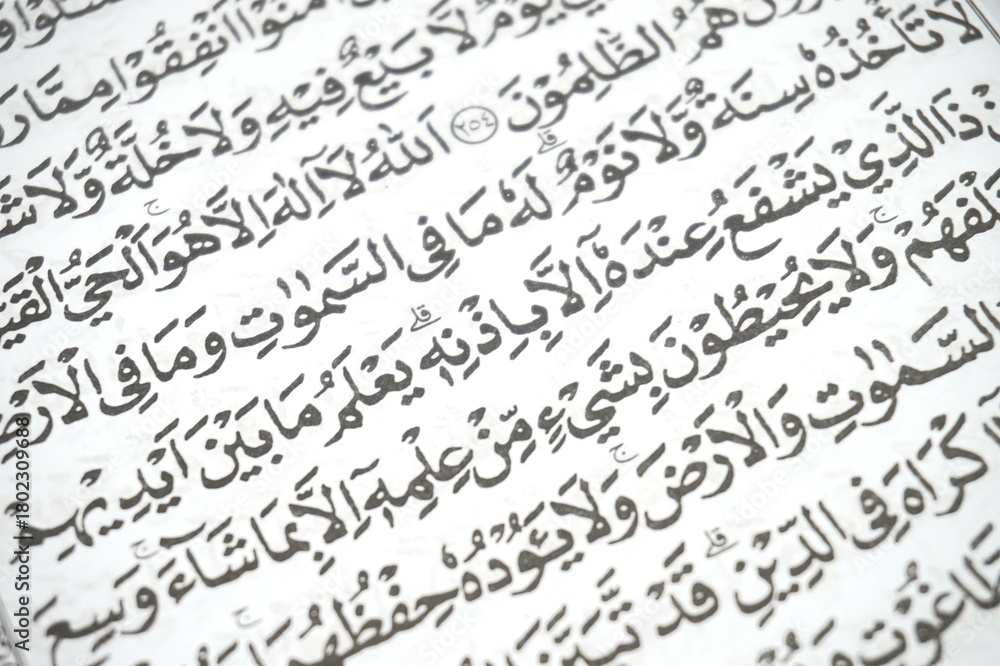 اَنْفِقُوْا مِمَّا
يَوْمٌ لَّا بَيْعٌ فِيْهِ وَلَا خُلَّةٌ وَّلَا
هُمُ الظّٰلِمُوْنَ ٢٥٤ اَللّٰهُ لَآ اِلٰهَ اِلَّا هُوَۚ اَلْحَيُّ
لَا تَأْخُذُهٗ سِنَةٌ وَّلَا نَوْمٌۗ لَهٗ مَا فِى السَّمٰوٰتِ وَمَا فِى الْاَرْضِ
ذَا الَّذِيْ يَشْفَعُ عِنْدَهٗٓ اِلَّا بِاِذْنِهٖۗ يَعْلَمُ مَا بَيْنَ اَيْدِيْهِمْ
خَلْفَهُمْۚ وَلَا يُحِيْطُوْنَ بِشَيْءٍ مِّنْ عِلْمِهٖٓ اِلَّا بِمَا شَاۤءَۚ وَسِعَ
السَّمٰوٰتِ وَالْاَرْضَۚ وَلَا يَـُٔوْدُهٗ حِفْظُهُمَاۚ
اِكْرَاهَ فِى الدِّيْنِۗ قَدْ تَّبَيَّنَ